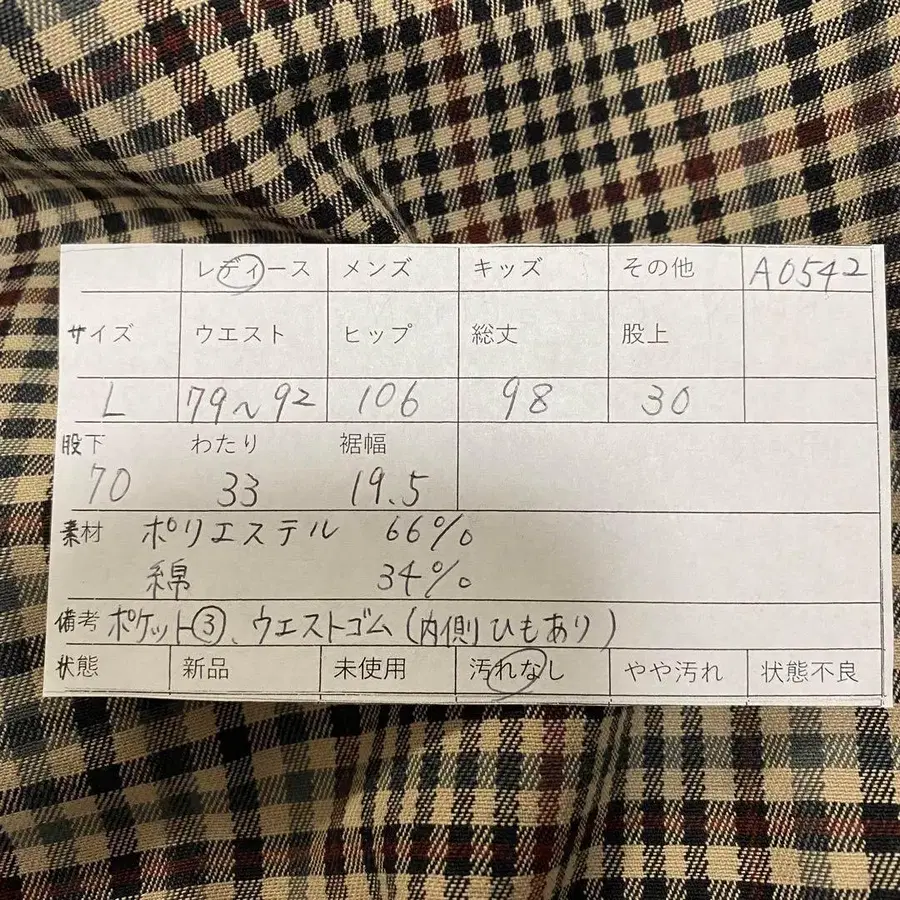 レディース メンズ キッズ その他 A0542
サイズ ウエスト ヒップ 総丈 股上
L 79～92 106 98 30
股下 わたり 裾幅
70 33 19.5
素材 ポリエステル 66%
綿 34%
備考 ポケット③、ウエストゴム(内側ひもあり)
状態 新品 未使用 汚れなし やや汚れ 状態不良